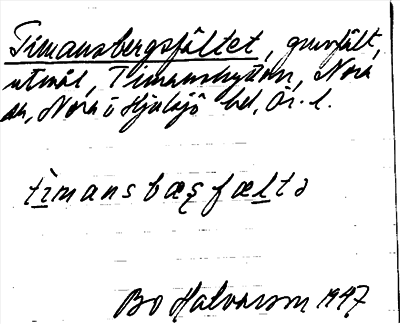 Timansbergsfältet, gruvfält,
utmål, Timanshyttan, Nora
sn, Nora o Hjulsjö bd, Ör. l.
tìmansbæʂfæltə
Bo Halvarson 1947